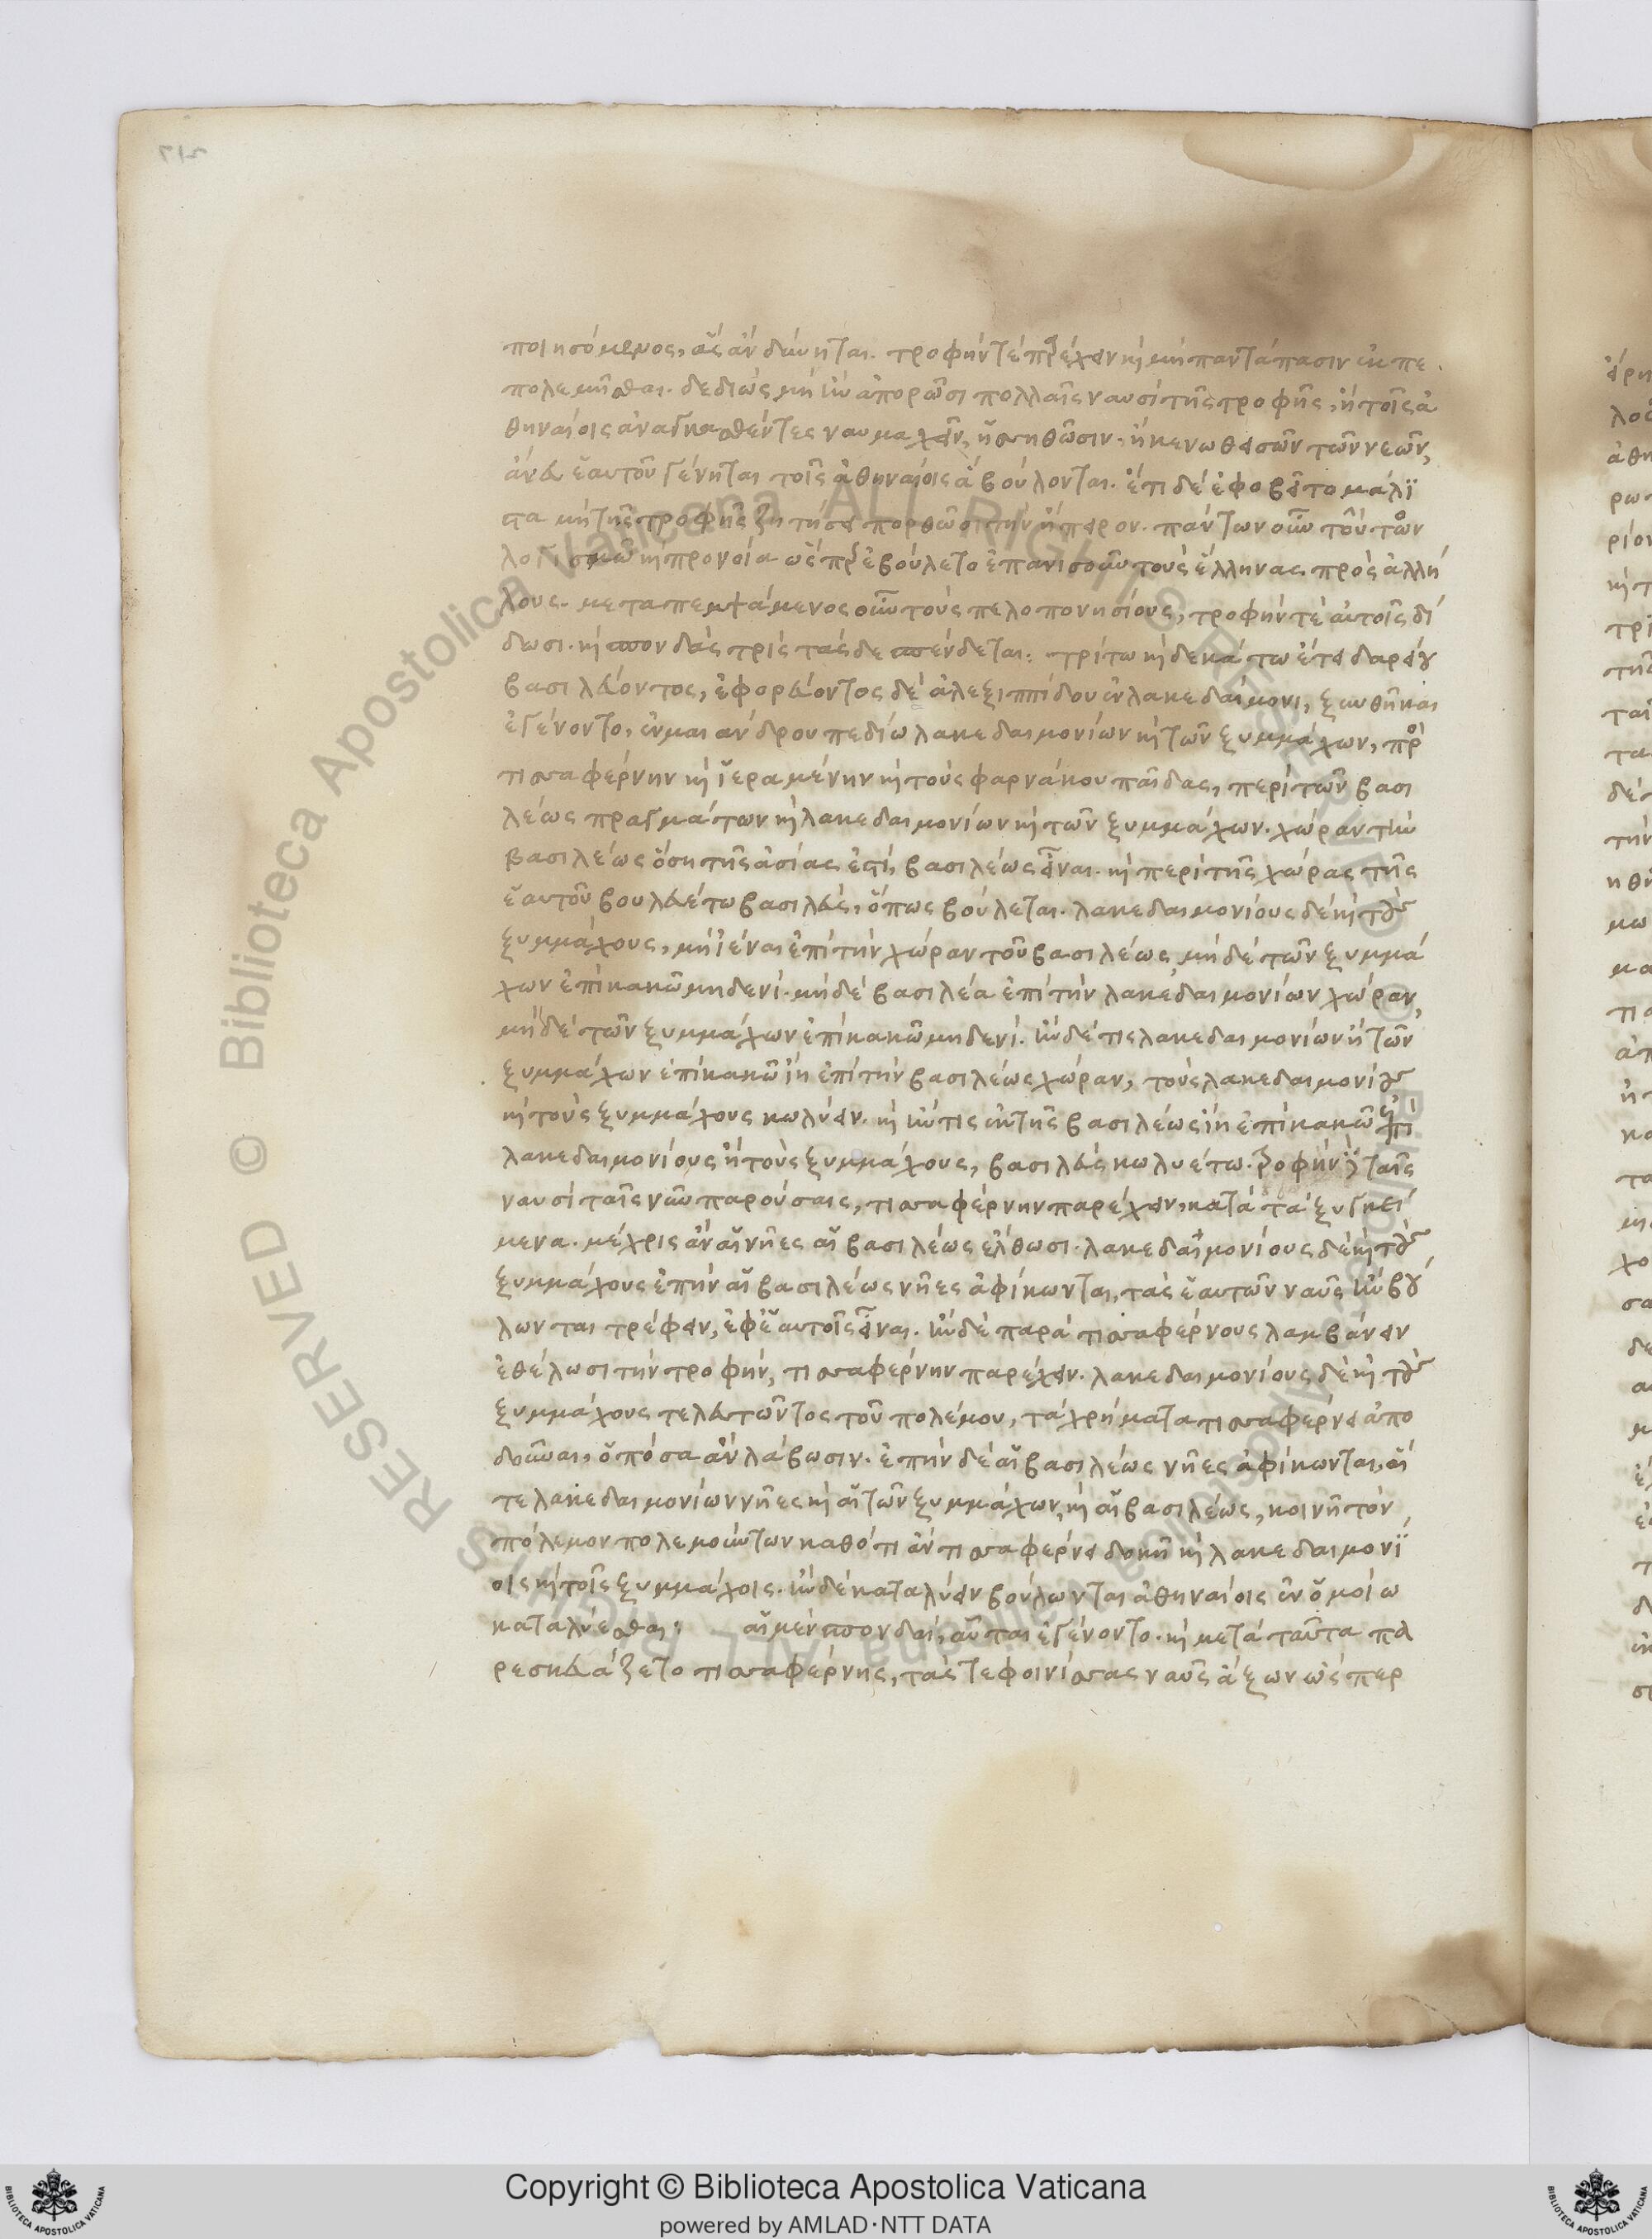 ποιησόμενος, ἃς ἂν δύνηται. τροφήν τε παρέχειν κ̀ μὴ παντάπασιν ἐκπε
πολεμῆσθαι. δεδιὼς μὴ ἢν ἀπορῶσι πολλαῖς ναυσὶ τῆς τροφῆς, ἢ τοῖς ἀ
θηναίοις ἀναγκασθέντες ναυμαχεῖν, ἡσσηθῶσιν. ἢ κενωθεισῶν τῶν νεῶν,
ἄνευ ἑαυτοῦ γένηται τοῖς ἀθηναίοις ἃ βούλονται. ἔτι δὲ ἐφοβεῖτο μάλϊ
στα μὴ τῆς τροφῆς ζητήσει πορθῶσι τὴν ἤπειρον. πάντων οὖν τούτων
λογισμῶ κ̀ προνοία ὥσπερ ἐβούλετο ἐπανισοῦν τοὺς ἕλληνας πρὸς ἀλλή
λους. μεταπεμψάμενος οὖν τοὺς πελοπονησίους, τροφήν τὲ αὐτοῖς δί
δωσι. κ̀ σπονδὰς τρὶς τάσδε σπένδεται: τρίτω κ̀ δεκάτω ἔτει δαρείου
βασιλεύοντος, ἐφορεύοντος δὲ ἀλεξιππίδου ἐν λακεδαίμονι, ξυνθῆκαι
ἐγένοντο, ἐν μαιάνδρου πεδίω λακεδαιμονίων κ̀ τῶν ξυμμάχων, πρὸς
τισσαφέρνην κ̀ ἱεραμένην κ̀ τοὺς φαρνάκου παῖδας, περὶ τῶν βασι
λέως πραγμάτων κ̀ λακεδαιμονίων κ̀ τῶν ξυμμάχων. χώραν τὴν
βασιλέως ὅση τῆς ἀσίας ἐστὶ, βασιλέως εἶναι. κ̀ περὶ τῆς χώρας τῆς
ἑαυτοῦ βουλευέτω βασιλεὺς, ὅπως βούλεται. λακεδαιμονίους δὲ κ̀ τοὺς
ξυμμάχους, μὴ ἰέναι ἐπὶ τὴν χώραν τοῦ βασιλέως, μὴ δὲ τῶν ξυμμά
χων ἐπὶ κακῶ μηδενί. μὴ δὲ βασιλέα ἐπὶ τὴν λακεδαιμονίων χώραν,
μὴ δὲ τῶν ξυμμάχων ἐπὶ κακῶ μηδενί. ἢν δέ τις λακεδαιμονίων ἢ τῶν
ξυμμάχων ἐπὶ κακῶ ἴη ἐπὶ τὴν βασιλέως χώραν, τοὺς λακεδαιμονίους
κ̀ τοὺς ξυμμάχους κωλύειν. κ̀ ἤν τις ἐκ τῆς βασιλέως ἴη ἐπὶ κακῶ ἐπὶ
λακεδαιμονίους ἢ τοὺς ξυμμάχους, βασιλεὺς κωλυέτω. τροφὴν δὲ ταῖς
ναυσὶ ταῖς νῦν παρούσαις, τισσαφέρνην παρέχειν, κατὰ τὰ ξυγκεί
μενα. μέχρις ἂν αἱ νῆες αἱ βασιλέως ἔλθωσι. λακεδαιμονίους δὲ κ̀ τοὺς
ξυμμάχους ἐπὴν αἱ βασιλέως νῆες ἀφίκωνται, τὰς ἑαυτῶν ναῦς ἢν βού
λωνται τρέφειν, ἐφ' ἑαυτοῖς εἶναι. ἢν δὲ παρὰ τισσαφέρνους λαμβάνειν
ἐθέλωσι τὴν τροφήν, τισσαφέρνην παρέχειν. λακεδαιμονίους δὲ κ̀ τοὺς
ξυμμάχους τελευτῶντος τοῦ πολέμου, τὰ χρήματα τισσαφέρνει ἀπο
δοῦναι, ὁπόσα ἂν λάβωσιν. ἐπὴν δὲ αἱ βασιλέως νῆες ἀφίκωνται, αἵ
τε λακεδαιμονίων νῆες κ̀ αἱ τῶν ξυμμάχων, κ̀ αἱ βασιλέως, κοινῆ τὸν
πόλεμον πολεμούντων καθότι ἂν τισσαφέρνει δοκῆ κ̀ λακεδαιμονϊ
οις κ̀ τοῖς ξυμμάχοις. ἢν δὲ καταλύειν βούλωνται ἀθηναίοις ἐν ὁμοίω
καταλύεσθαι: αἱ μὲν σπονδαὶ, αὗται ἐγένοντο. κ̀ μετὰ ταῦτα πα
ρεσκευάζετο τισσαφέρνης, τάς τε φοινίσσας ναῦς ἄξων ὥσπερ
Copyright © Biblioteca Apostolica Vaticana
powered by AMLAD·NTT DATA